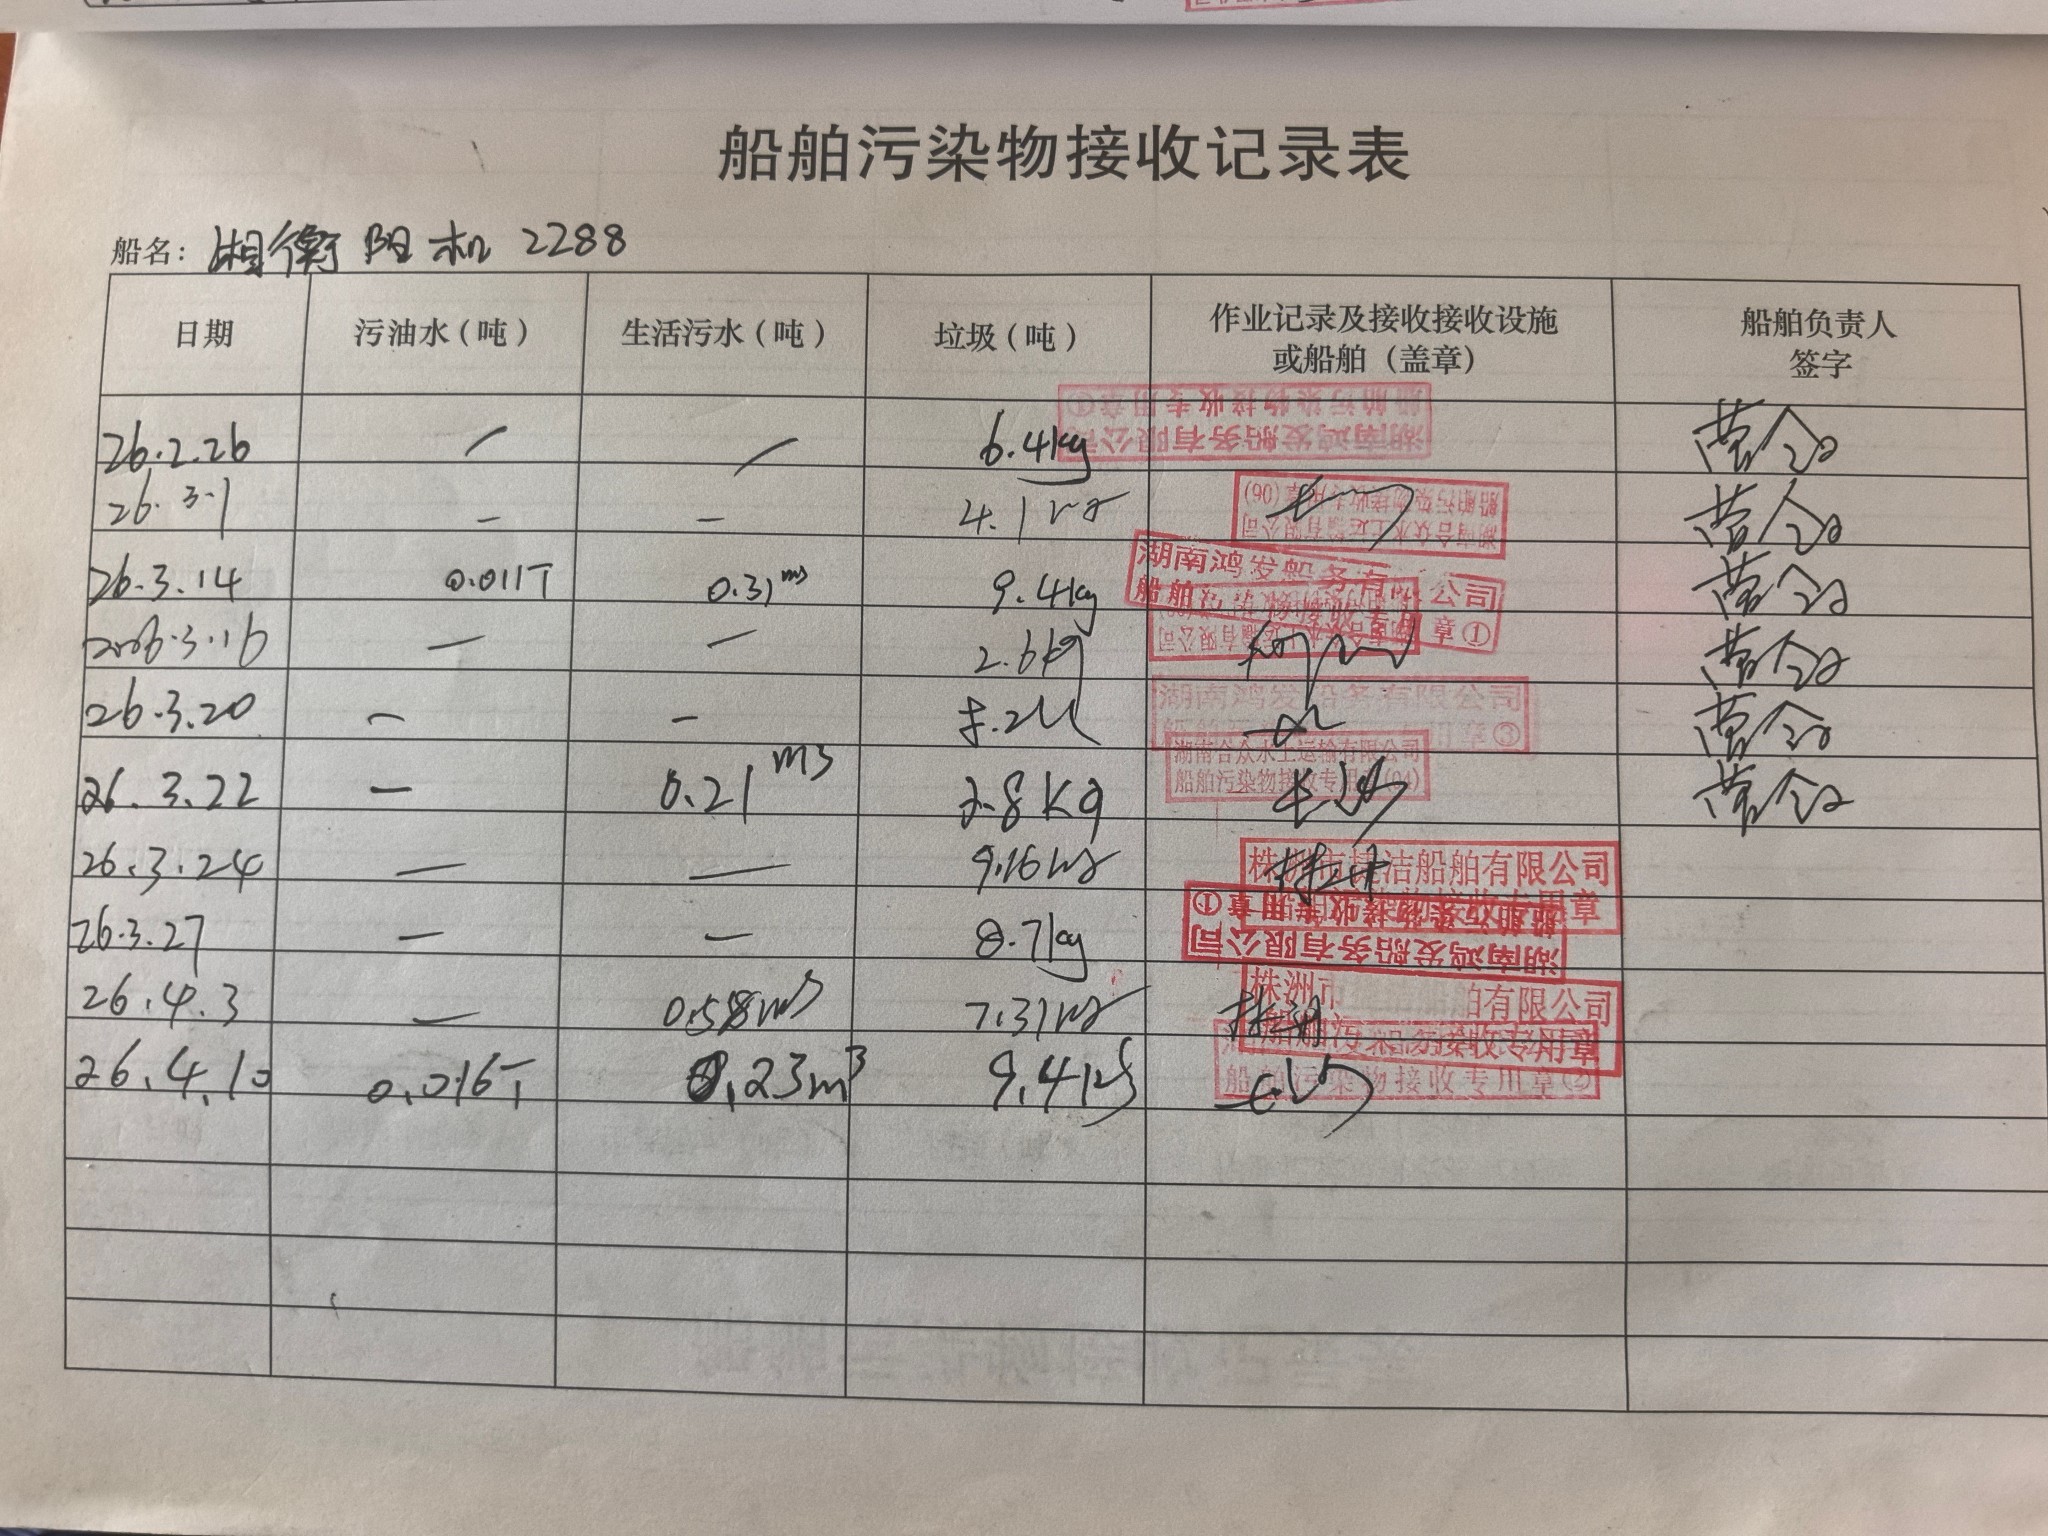 船舶污染物接收记录表
船名：湘衡阳机 2288
日期 污油水（吨） 生活污水（吨） 垃圾（吨） 作业记录及接收接收设施或船舶（盖章） 船舶负责人签字
26.2.26 / / 6.4kg 湖南鸿发船务有限公司 船舶污染物接收专用章①
26.3.1 — — 4.1kg 湖南合众水上运输有限公司 船舶污染物接收专用章(06)
26.3.14 0.011T 0.31m3 9.4kg 湖南鸿发船务有限公司 船舶污染物接收专用章①
2026.3.16 — — 2.6kg
26.3.20 — — 湖南鸿发船务有限公司 船舶污染物接收专用章③
26.3.22 — 0.21m3 2.8Kg 湖南合众水上运输有限公司 船舶污染物接收专用章(04) 长沙
26.3.24 — — 9.16kg 株洲市捷洁船舶有限公司 株洲
26.3.27 — — 8.7kg 湖南鸿发船务有限公司 船舶污染物接收专用章①
26.4.3 — 0.58m3 7.31kg 株洲市捷洁船舶有限公司 船舶污染物接收专用章 株洲
26.4.10 0.016T 0.23m3 9.4kg 船舶污染物接收专用章② 长沙